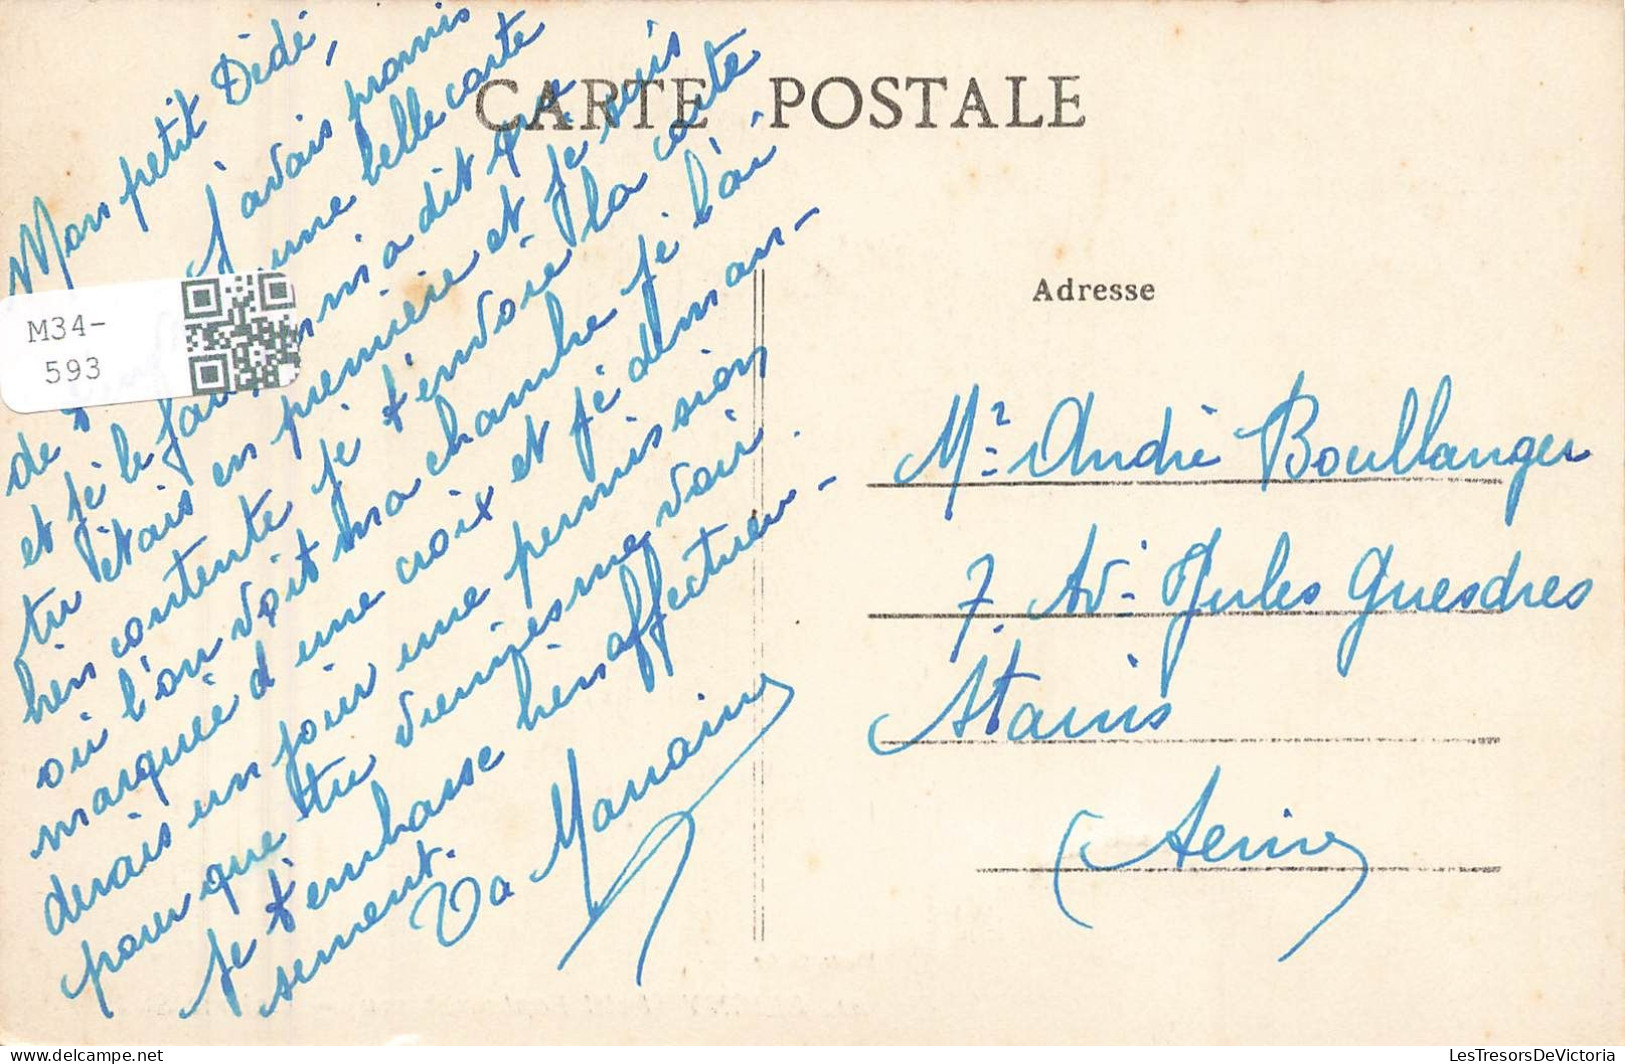 CARTE POSTALE
Mon petit Dédé,
J'avais promis
de une belle carte
et je le fais m'a dit que
tu étais en première et je suis
bien contente je t'envoie la carte
où l'on voit ma chambre je l'ai
marquée d'une croix et je deman-
derais un jour une permission
pour que tu viennes me voir.
Je t'embrasse bien affectueu-
sement.
Ta Marraine
M34-
593
Adresse
Mr André Boullanger
7. Av. Jules Guesdres
Stains
(Seine)
LesTresorsDeVictoria